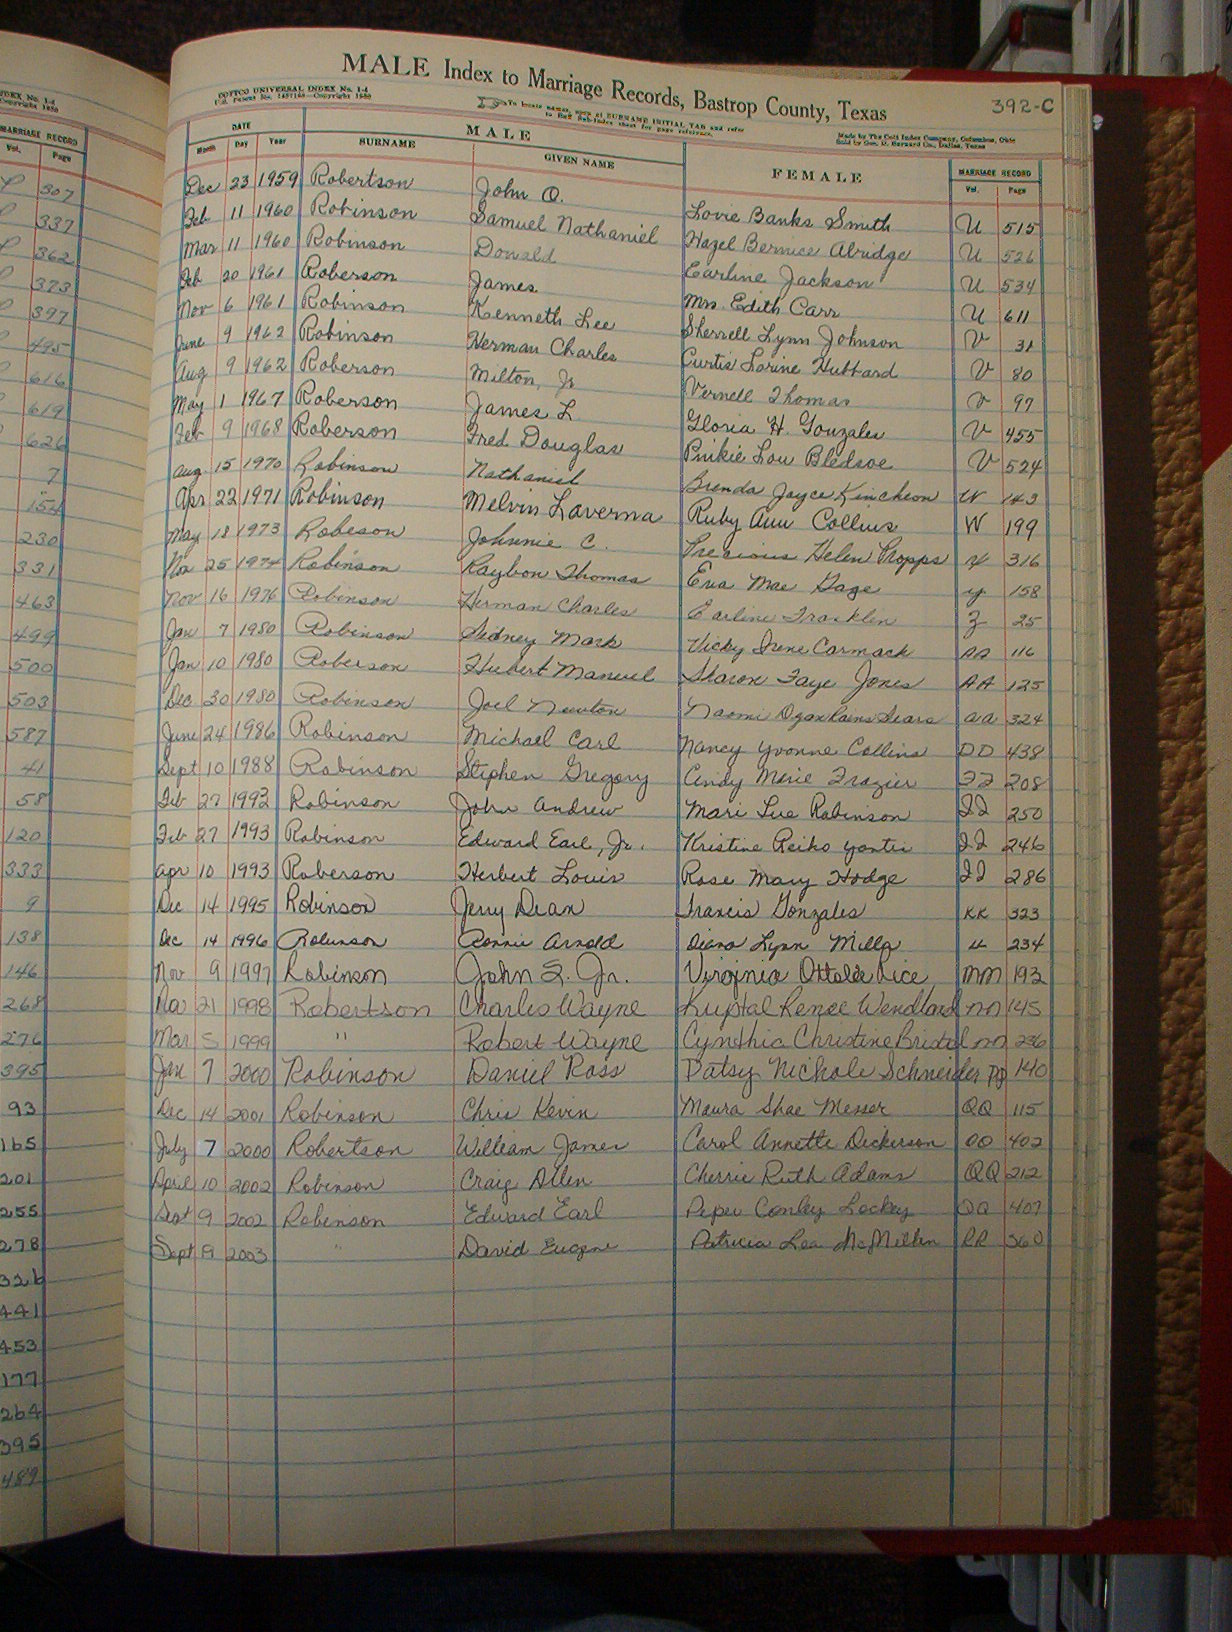 INDEX No. 1-4
Copyright 1950
MARRIAGE RECORD
Vol. Page
307
337
362
373
397
495
616
619
626
7
154
230
331
463
499
500
503
587
41
58
120
333
9
138
146
268
276
395
93
165
201
255
278
326
441
453
177
264
395
489
MALE Index to Marriage Records, Bastrop County, Texas
392-C
COTTCO UNIVERSAL INDEX No. 1-4
To locate names, open at SURNAME INITIAL TAB and refer
to Buff Sub-Index sheet for page reference.
Made by The Cott Index Company, Columbus, Ohio
Sold by Geo. D. Barnard Co., Dallas, Texas
DATE MALE FEMALE MARRIAGE RECORD
Month Day Year SURNAME GIVEN NAME Vol. Page
Dec 23 1959 Robertson John O. Lovie Banks Smith U 515
Feb 11 1960 Robinson Samuel Nathaniel Hazel Bernice Alridge U 526
Mar 11 1960 Robinson Donald Earline Jackson U 534
Feb 20 1961 Roberson James Mrs. Edith Carr U 611
Nov 6 1961 Robinson Kenneth Lee Sherrell Lynn Johnson V 31
June 9 1962 Robinson Herman Charles Curtis Lorine Hubbard V 80
Aug 9 1962 Roberson Milton, Jr Vernell Thomas V 97
May 1 1967 Roberson James L Gloria H. Gonzales V 455
Feb 9 1968 Roberson Fred Douglas Pinkie Lou Bledsoe V 524
Aug. 15 1970 Robinson Nathaniel Brenda Joyce Kincheon W 143
Apr 22 1971 Robinson Melvin Laverna Ruby Ann Collins W 199
May 18 1973 Robeson Johnnie C. Precious Helen Propps 316
Nov 25 1974 Robinson Raybon Thomas Eva Mae Gage y 158
Nov 16 1976 Robinson Herman Charles Earline Franklin Z 25
Jan 7 1980 Robinson Sidney Mark Vicky Irene Carmack AA 116
Jan 10 1980 Roberson Hubert Manuel Sharon Faye Jones AA 125
Dec 30 1980 Robinson Joel Newton Naomi Rains Sears AA 324
June 24 1986 Robinson Michael Carl Nancy Yvonne Collins DD 438
Sept 10 1988 Robinson Stephen Gregory Cindy Marie Frazier FF 208
Feb 27 1992 Robinson John Andrew Mari Sue Robinson II 250
Feb 27 1993 Robinson Edward Earl, Jr. Kristine Reiko II 246
Apr 10 1993 Roberson Herbert Louis Rose Mary Hodge II 286
Dec 14 1995 Robinson Jerry Dean Francis Gonzales KK 323
Dec 14 1996 Robinson Ronnie Arnold Diana Lynn Mills LL 234
Nov 9 1997 Robinson John S. Jr. Virginia Rice MM 192
Nov 21 1998 Robertson Charles Wayne Krystal Renee Wendland 145
Mar 5 1999 " Robert Wayne Cynthia Christine Bristol 236
Jan 7 2000 Robinson Daniel Ross Patsy Nichole Schneider PP 140
Dec 14 2001 Robinson Chris Kevin Maura Shae Messer QQ 115
July 7 2000 Robertson William James Carol Annette Dickerson OO 402
April 10 2002 Robinson Craig Allen Cherrie Ruth Adams QQ 212
Sept 9 2002 Robinson Edward Earl Piper Conley Lockey QQ 407
Sept 9 2003 " David Eugene Patricia Lea McMillen RR 360